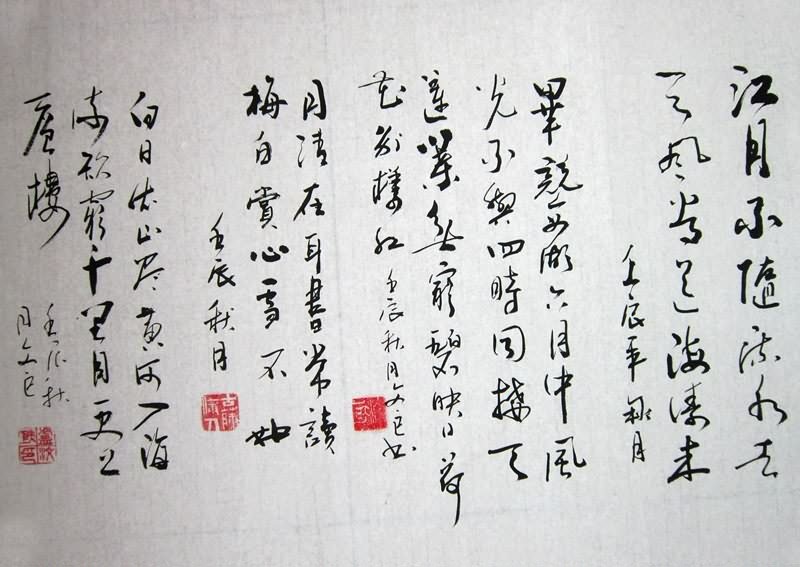 江月不隨流水去
天风常送海濤来
壬辰年秋月
畢竟西湖六月中風
光不與四時同接天
蓮葉無窮碧映日荷
花別樣红 壬辰秋月
月清在耳書常讀
梅白賞心雪不如
壬辰秋月
白日依山尽黄河入海
流欲窮千里目更上
層樓
壬辰秋
月